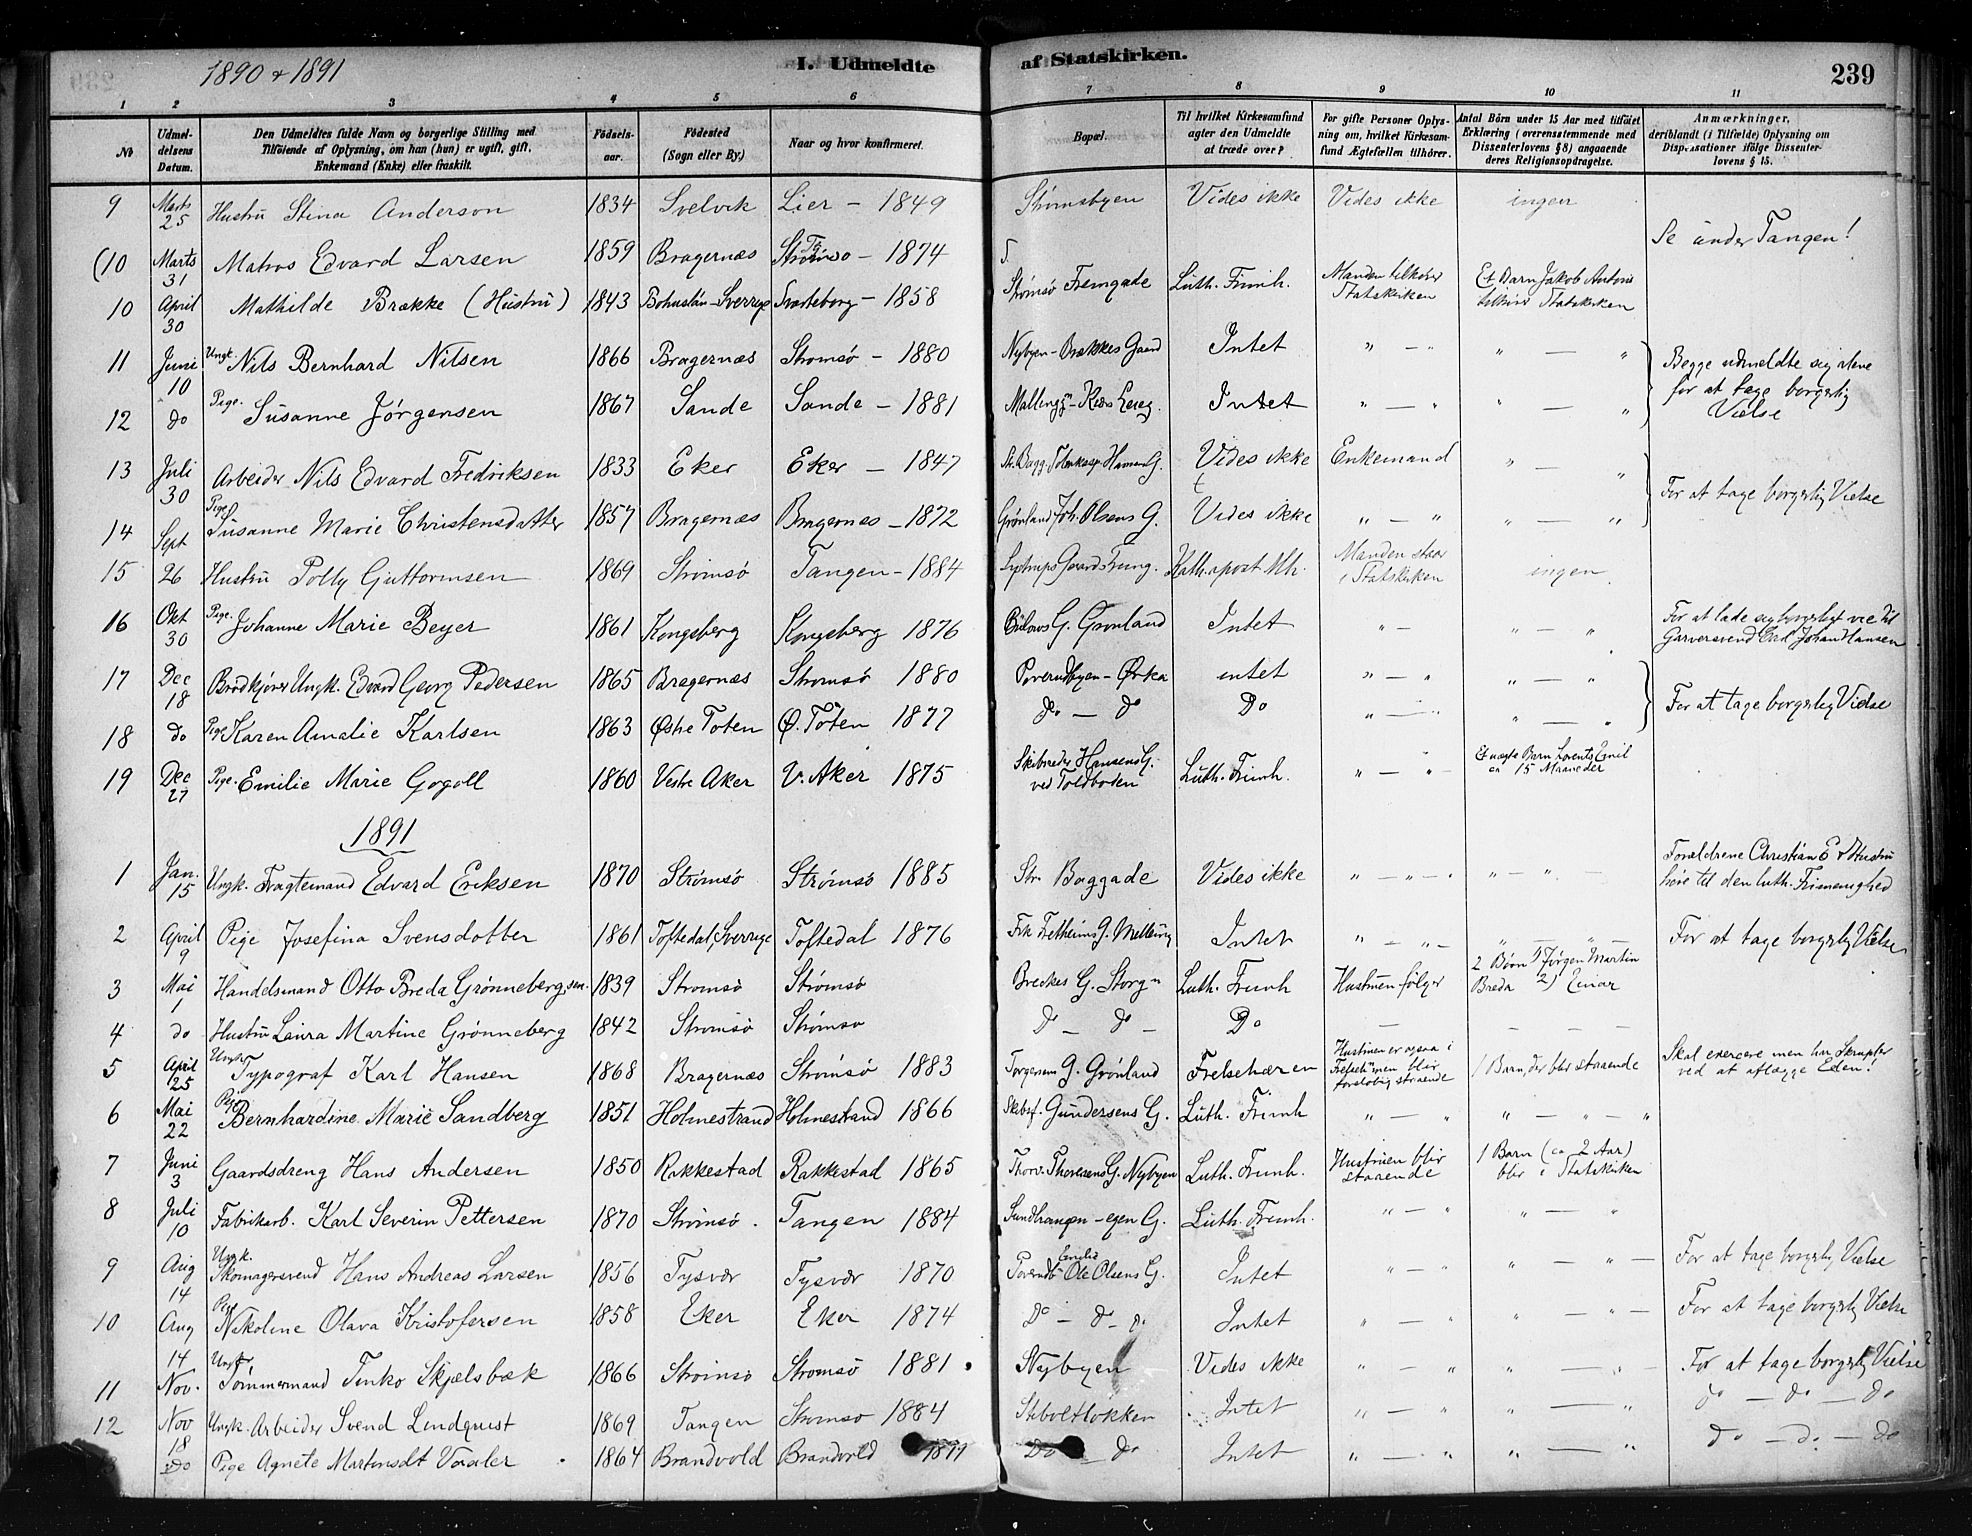 1890 & 1891
I. Udmeldte af Statskirken.
239
1 2 3 4 5 6 7 8 9 10 11
No
Udmeldelsens Datum.
Den Udmeldtes fulde Navn og borgerlige Stilling med Tilføiende af Oplysning, om han (hun) er ugift, gift, Enkemand (Enke) eller fraskilt.
Fødselsaar.
Fødested (Sogn eller By.)
Naar og hvor konfirmeret.
Bopæl.
Til hvilket Kirkesamfund agter den Udmeldte at træde over?
For gifte Personer Oplysning om, hvilket Kirkesamfund Ægtefællen tilhører.
Antal Börn under 15 Aar med tilføiet Erklæring (overensstemmende med Dissenterlovens § 8) angaaende deres Religionsopdragelse.
Anmærkninger, deriblandt (i Tilfælde) Oplysning om Dispensationer ifölge Dissenterlovens § 15.
9 Marts 25 Hustru Stina Anderson 1834 Svelvik Lier – 1849 Strømsbyen Vides ikke Vides ikke ingen
(10 Marts 31 Matros Edvard Larsen 1859 Bragernæs Strømsø – 1874 Se under Tangen!
10 April 30 Mathilde Brække (Hustru) 1843 Bohuslän-Sverrige Svarteborg – 1858 Strømsø Fremgade Luth. Frimh. Manden tilhører Statskirken Et Barn Jakob Antons tilhører Statskirken
11 Juni 10 Ungk. Nils Bernhard Nilsen 1866 Bragernæs Strømsø – 1880 Nybyen – Brækkes Gaard Intet " – " " — " Begge udmeldte sig alene for at tage borgerlig Vielse
12 do Pige. Susanne Jörgensen 1867 Sande Sande – 1881 Intet " — " " — "
13 Juli 30 Arbeider Nils Edvard Fredriksen 1833 Eker Eker – 1847 Vides ikke Enkemand " — " For at tage borgerlig Vielse
14 Sept Pige Susanne Marie Christensdatter 1857 Bragernæs Bragernæs – 1872 Grønland Joh. Olsens G. Vides ikke " — " " — "
15 26 Hustru Polly Guttormsen 1869 Strömsö Tangen – 1884 Kath. apost. Mh. Manden staar i Statskirken ingen
16 Okt 30 Pige. Johanne Marie Beyer 1861 Kongsberg Kongsberg 1876 Bülows G. Grønland Intet " – " — " For at lade sig borgerligt vie til Garversvend Carl Johan Hansen
17 Dec 18 Brødkjører Ungk. Edvard Georg Pedersen 1865 Bragernæs Strømsö 1880 intet " — " " — " For at tage borgerlig Vielse
18 do Pige Karen Amalie Karlsen 1863 Østre Toten Ø. Toten 1877 do — do Do " — " " — "
19 Dec 27 Pige. Emilie Marie Gogoll 1860 Vestre Aker V. Aker 1875 Skibsreder Hansens G. ved Toldboden Luth. Frimh. " — " Et uægte Barn Lorents Emil ca 15 Maaneder
1891
1 Jan. 15 Ungk. Fragtemand Edvard Eriksen 1870 Strømsö Strømsö 1885 Str. Baggade Vides ikke " — " — " " — " — Forældrene Christian E & Hustru høre til den luth. Frimenighed
2 April 9 Pige Josefina Svensdotter 1861 Toftedal, Sverrige Toftedal 1876 Intet " — " — For at tage borgerlig Vielse
3 Mai 1 Handelsmand Otto Breda Grønneberg, sen. 1839 Strømsö Strømsö Breckes G. Storgn Luth. Frimh Hustruen følger 2 Børn 1) Jørgen Martin Breda 2) Einar
4 do Hustru Laura Martine Grønneberg 1842 Strømsö Strømsø do — do — Do — — — —
5 April 25 Ungk. Typograf Karl Hansen 1868 Bragernæs Strømsö 1883 Torgersens G. Grönland Frelsehæren Hustruen er ogsaa i Frelsehæren men blir foreløbig staaende 1 Barn, der blir staaende Skal exercere men har Skrupler ved at aflægge Eden!
6 Mai 22 Pige Bernhardine Marie Sandberg 1851 Holmestrand Holmestrand 1866 Skibsf. Gundersens G. Luth. Frimh " — " " — " — "
7 Juni 3 Gaardsdreng Hans Andersen 1850 Rakkestad Rakkestad 1865 Thorv. Thoresens G. Nybyen Luth. Frimh. Hustruen blir staaende 1 Barn (ca 2 Aar) blir i Statskirken
8 Juli 10 Fabrikarb. Karl Severin Pettersen 1870 Strömsö. Tangen 1884 Sundhaugen – egen G. Luth. Frimh. " — " " — "
9 Aug 14 Ungk. Skomagersvend Hans Andreas Larsen 1856 Tysvær Tysvær 1870 Ole Olsens G. Intet " — " " — " — For at tage borgerlig Vielse
10 Aug 14 Pige Nikoline Olava Kristofersen 1858 Eker Eker 1874 Do — do – do Intet " — " " — " — For at tage borgerlig Vielse
11 Nov. Ungk. Tømmermand Tinko Skjelsbæk 1866 Strømsö Strømsö 1881. Nybyen Vides ikke " — " " — " For at tage borgerlig Vielse
12 Nov 18 Ungk. Arbeider Svend Lindqvist 1869 Tangen Strømsø 1884 Skiboltløkken Intet " — " " — " do — do — do
Do Pige Agnete Martinsdt Vaaler 1864 Brandvold Brandvold Do — do Intet " — " " — " do — do — do